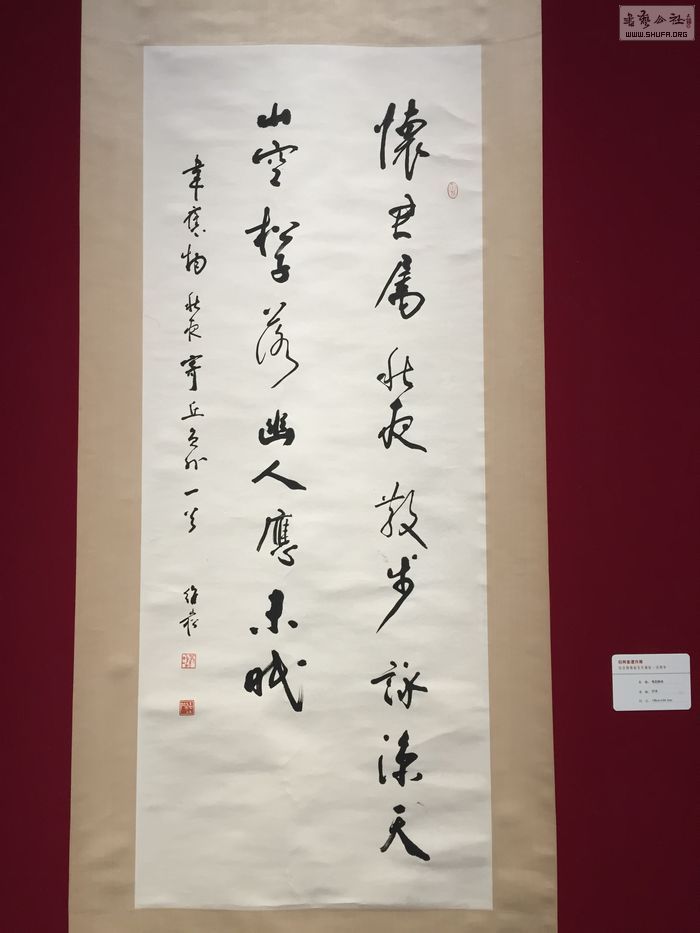 懷君属秋夜散步詠涼天
山空松子落幽人應未眠
韋應物秋夜寄丘員外一首
書藝公社
WWW.SHUFA.ORG